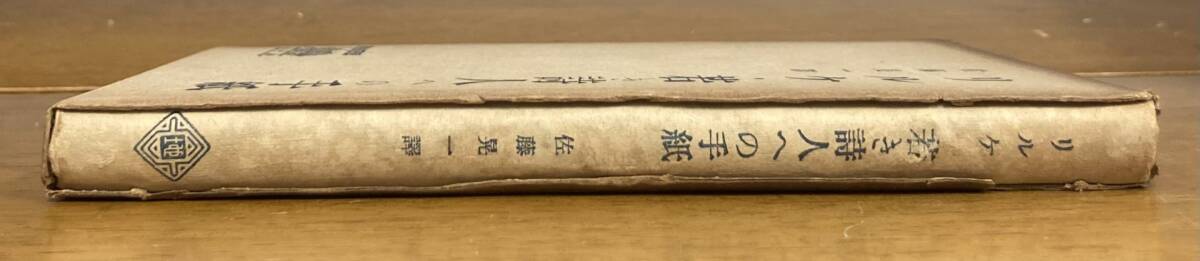 リルケ 若き詩人への手紙
リルケ 若き詩人への手紙 佐藤晃一譯